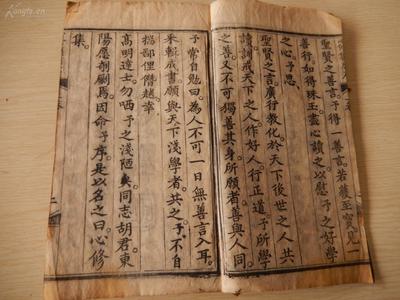 聖賢之言予得一善言若獲至寶見一
善行如得珠玉盡心讀之以慰予之好學
之心予思
聖賢之言廣行教化於天下後世之人共
讀訓戒天下之人作好人行正道予所學
之善又不可獨善其身所願者善與人同
子常自勉曰為人不可一日無善言入耳
采輯成書願與天下淺學者共之予不自
揣鄙俚僭越幸
高明達士勿哂予之淺陋矣同志胡君東
陽應剞劂焉因命予序是以名之曰心修
集